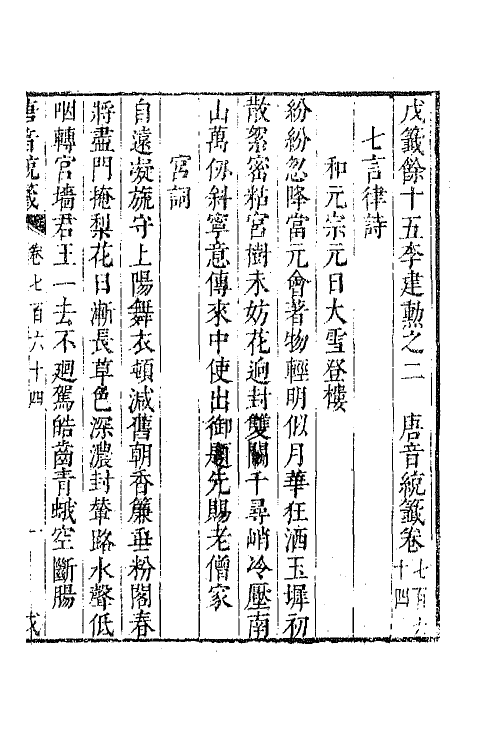 戊籤餘十五李建勲之二　唐音統籤卷七百六十四
七言律詩
和元宗元日大雪登樓
紛紛忽降當元會著物輕明似月華狂洒玉墀初
散絮密粘宮樹未妨花逈封雙闕千尋峭冷壓南
山萬仞斜寧意傳來中使出御題先賜老僧家
宮詞
自遠凝旒守上陽舞衣頓減舊朝香簾垂粉閣春
將盡門掩梨花日漸長草色深濃封輦路水聲低
咽轉宮墻君王一去不迴駕皓齒青蛾空斷腸
唐音統籤 卷七百六十四 一 戊